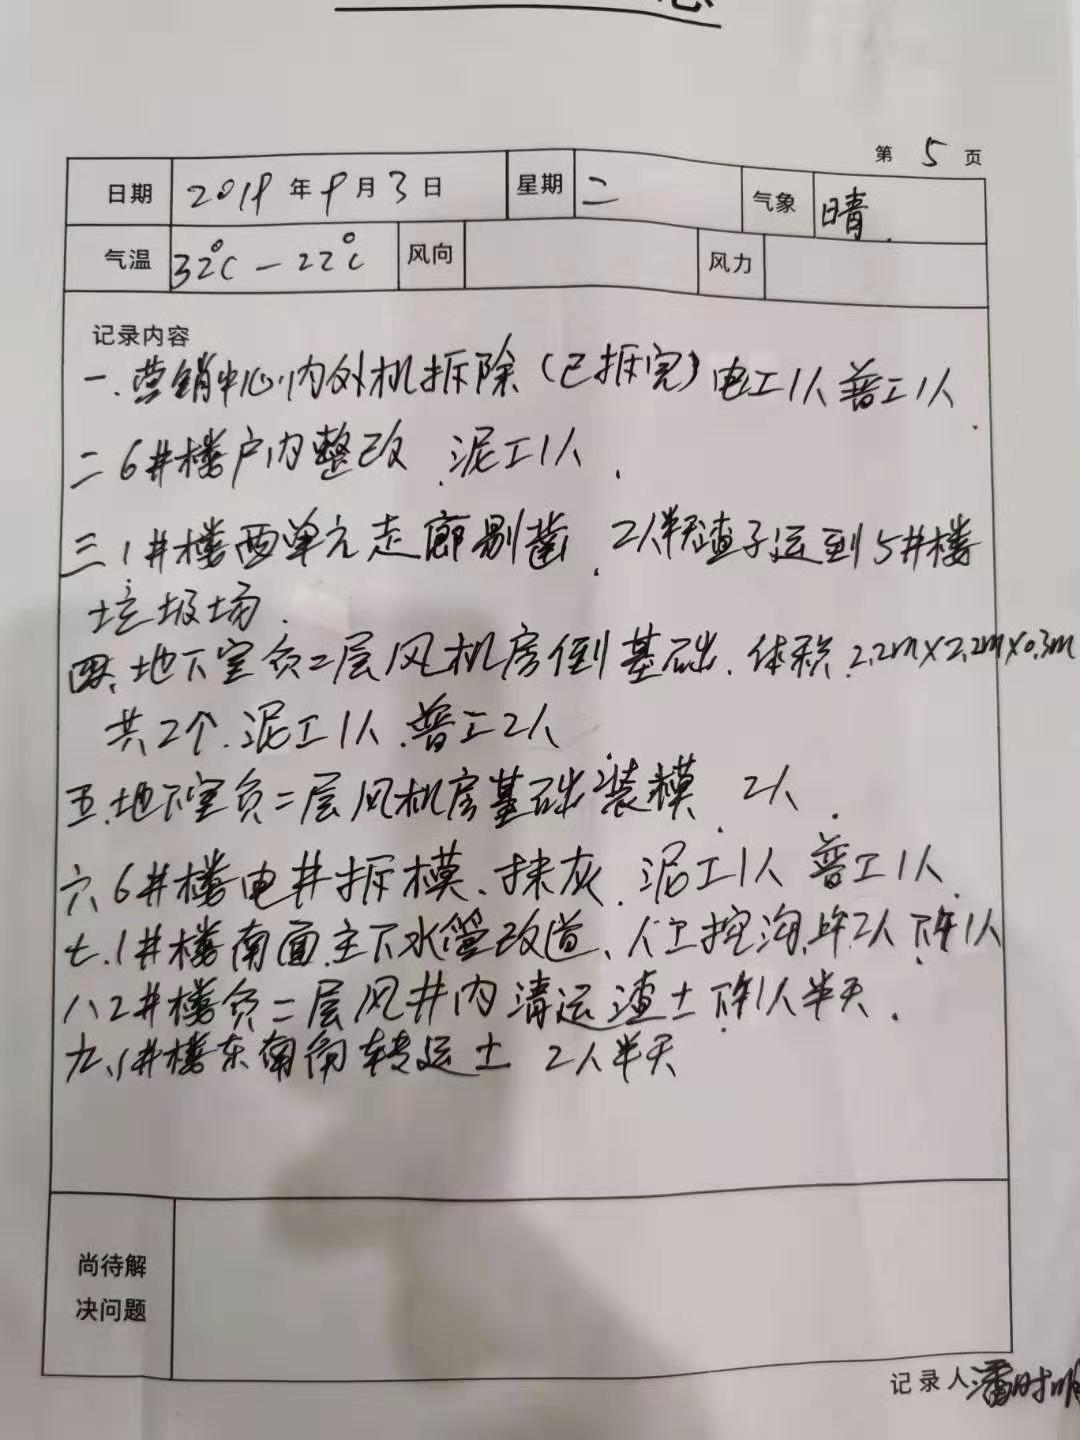 第 5 页
日期 2019年9月3日 星期 二 气象 晴.
气温 32℃-22℃ 风向 风力
记录内容
一.营销中心内外机拆除(已拆完)电工1人 普工1人.
二 6#楼户内整改.泥工1人.
三 1#楼西单元走廊剔凿.2人半天渣子运到5#楼
垃圾场.
四.地下室负二层风机房倒基础.体积.2.2m×2.2m×0.3m
共2个.泥工1人.普工2人
五.地下室负二层风机房基础装模.2人.
六、6#楼电井拆模、抹灰.泥工1人 普工1人.
七.1#楼南面主下水管改道、人工挖沟.上午2人.下午1人
八2#楼负二层风井内清运渣土.下午1人半天.
九、1#楼东南角转运土 2人半天
尚待解
决问题
记录人 潘时